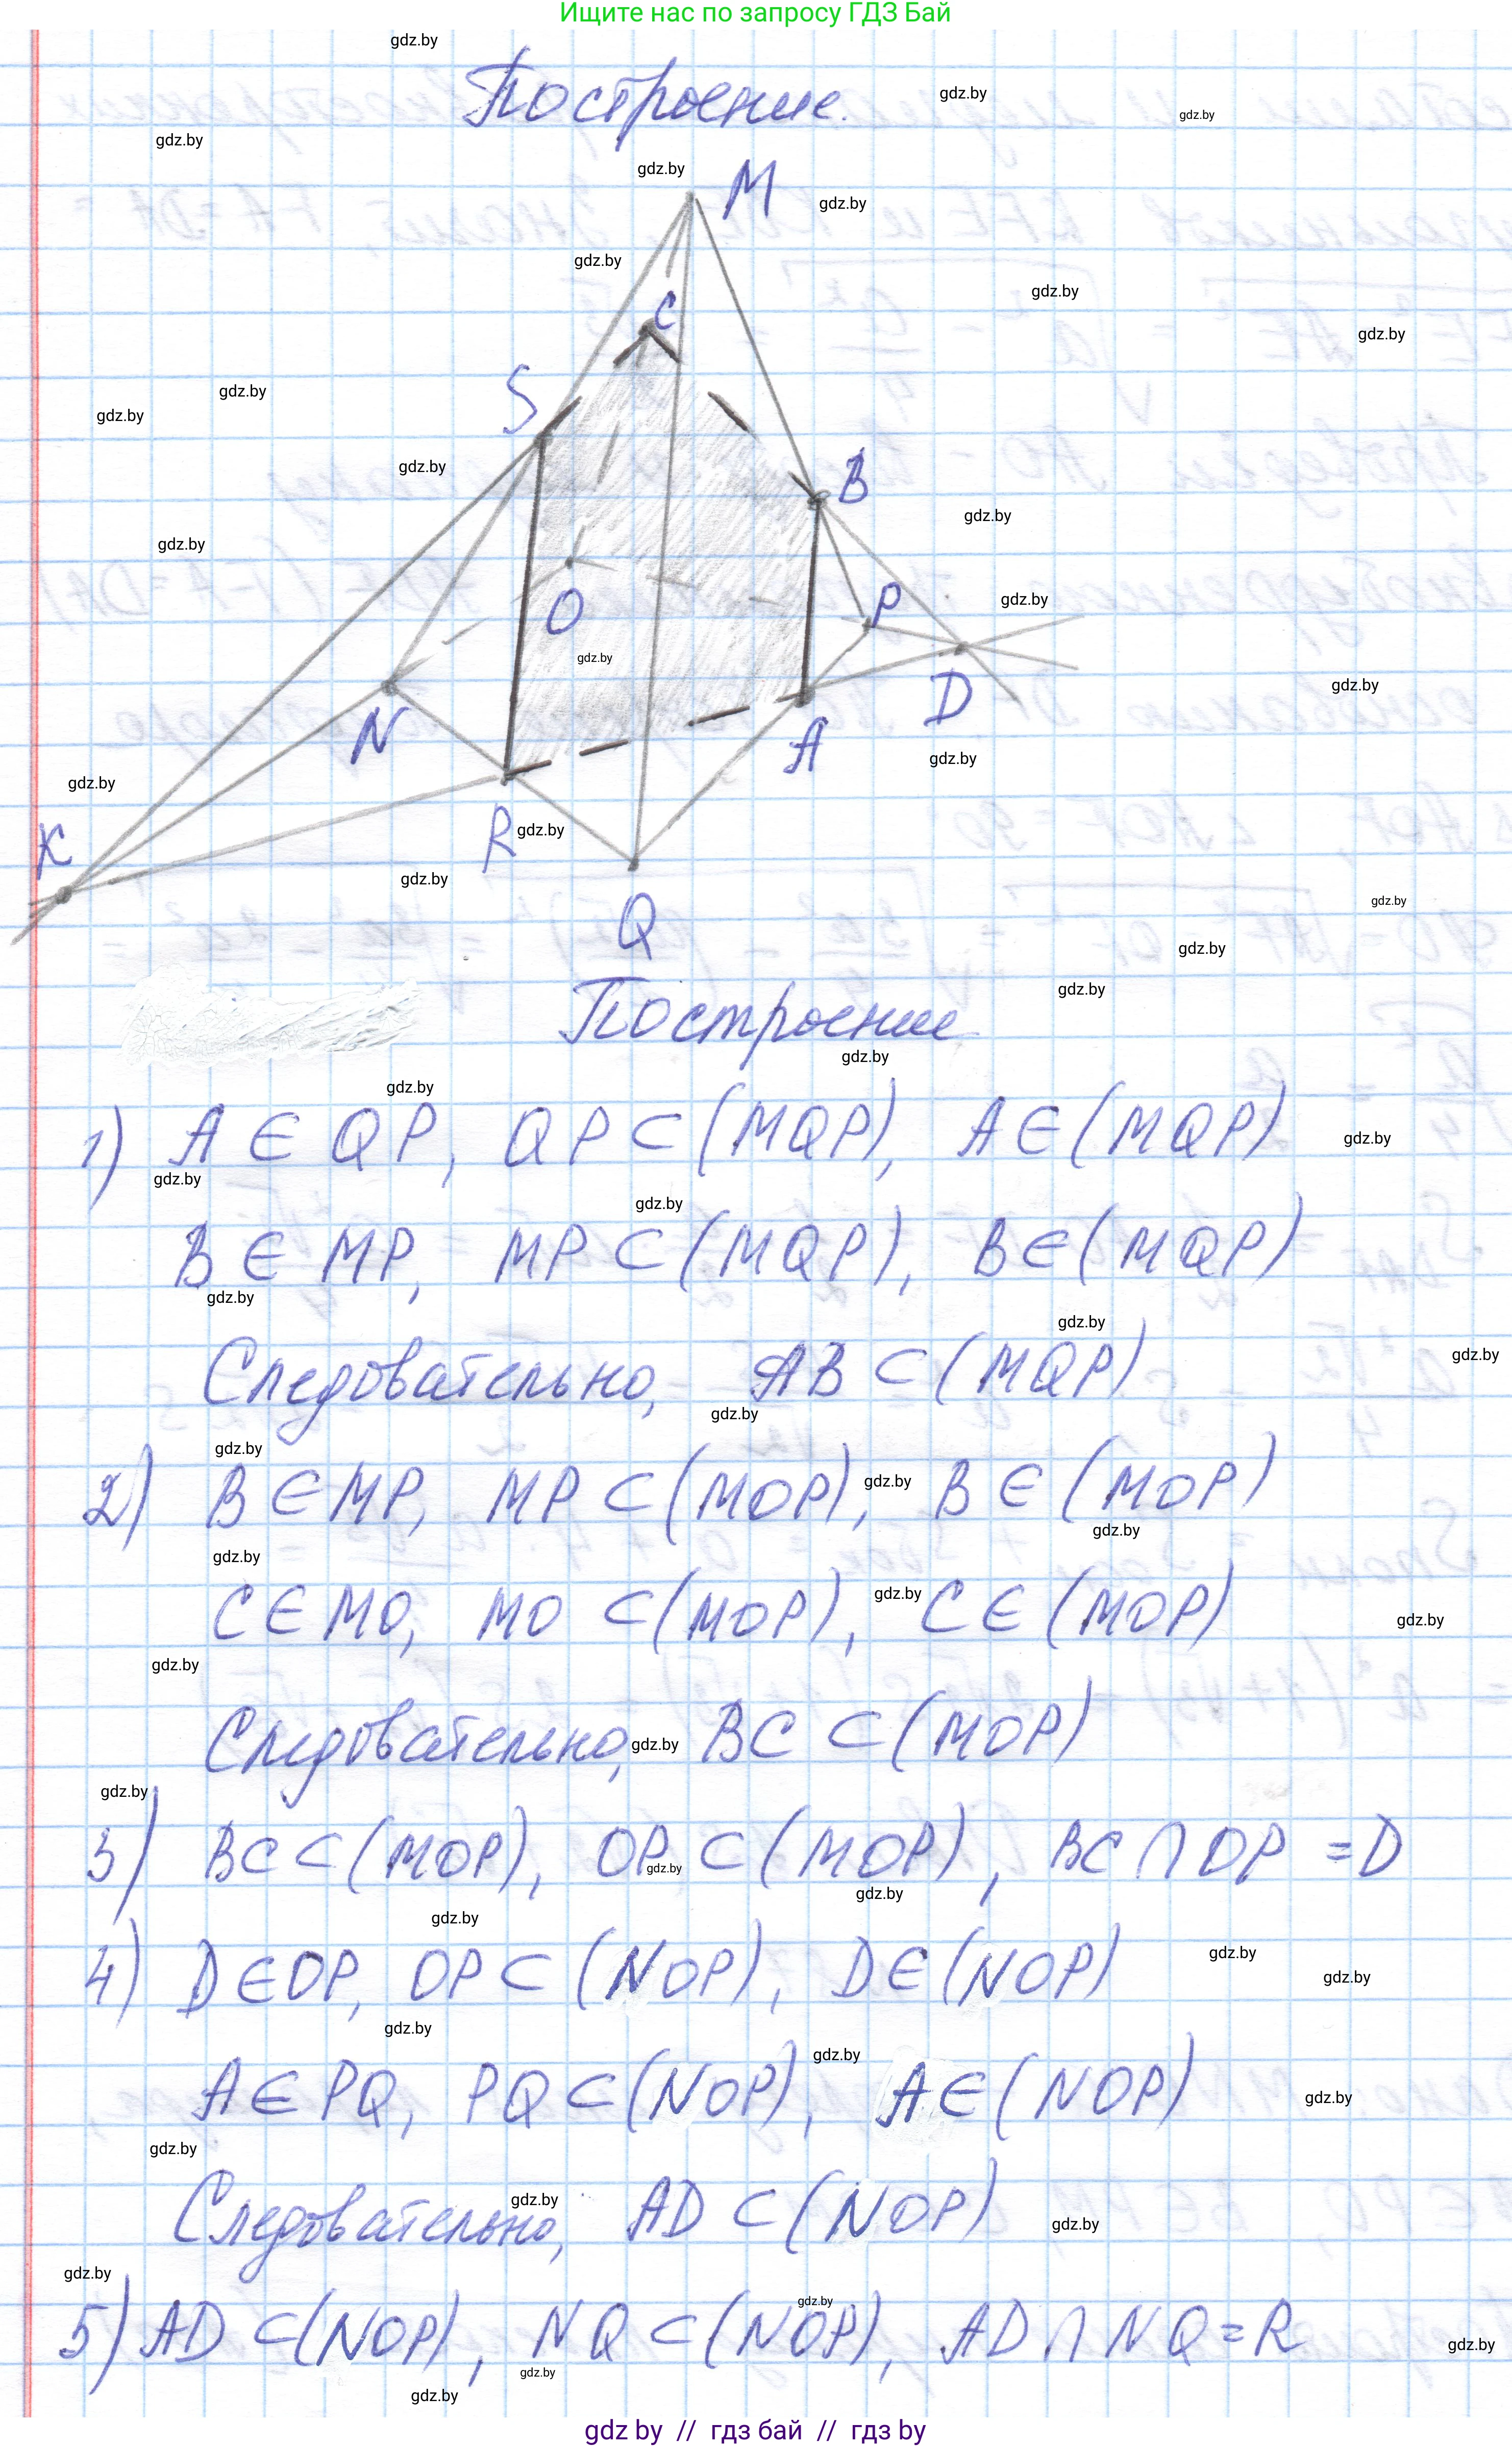 Ищите нас по запросу ГДЗ Бай
Построение.
M
C
S
B
O
P
N
D
A
K
R
Q
Построение
1) A ∈ QP, QP ⊂ (MQP), A ∈ (MQP)
B ∈ MP, MP ⊂ (MQP), B ∈ (MQP)
Следовательно, AB ⊂ (MQP)
2) B ∈ MP, MP ⊂ (MOP), B ∈ (MOP)
C ∈ MO, MO ⊂ (MOP), C ∈ (MOP)
Следовательно, BC ⊂ (MOP)
3) BC ⊂ (MOP), OP ⊂ (MOP), BC ∩ OP = D
4) D ∈ OP, OP ⊂ (NOP), D ∈ (NOP)
A ∈ PQ, PQ ⊂ (NOP), A ∈ (NOP)
Следовательно, AD ⊂ (NOP)
5) AD ⊂ (NOP), NQ ⊂ (NOP), AD ∩ NQ = R
gdz by // гдз бай // гдз by